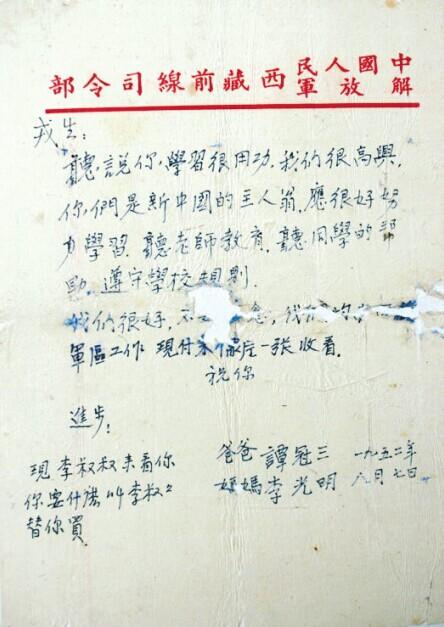 中國人民解放軍西藏前線司令部
戎生:
聽說你,學習很用功.我們很高興.
你們是新中國的主人翁.應很好努
力學習.聽老師教育.聽同學的帮
助.遵守學校規則.
我們很好,不 念,我
軍區工作 現付来像片一張收看.
祝你
進步:
爸爸 譚冠三 一九五二年
妈媽 李光明 八月七日
現李叔叔来看你
你要什 叫李叔々
替你買.